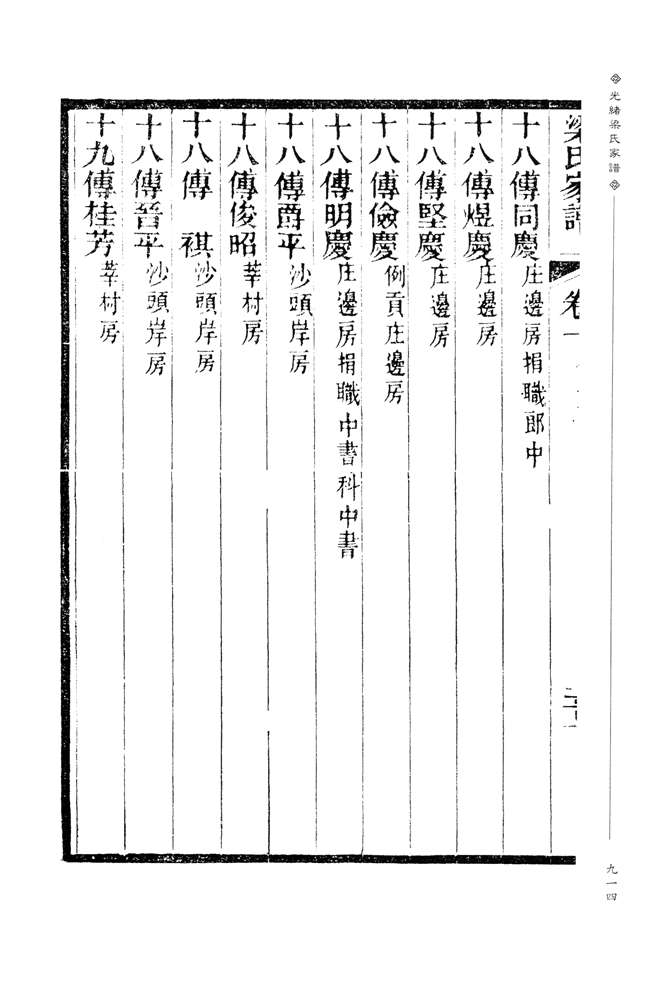 光緒梁氏家譜
梁氏家譜 卷一
十八傳同慶 庄邊房捐職郎中
十八傳煜慶 庄邊房
十八傳堅慶 庄邊房
十八傳儉慶 例貢庄邊房
十八傳明慶 庄邊房捐職中書科中書
十八傳爵平 沙頭岸房
十八傳俊昭 莘村房
十八傳 祺 沙頭岸房
十八傳晉平 沙頭岸房
十九傳桂芳 莘村房
九一四